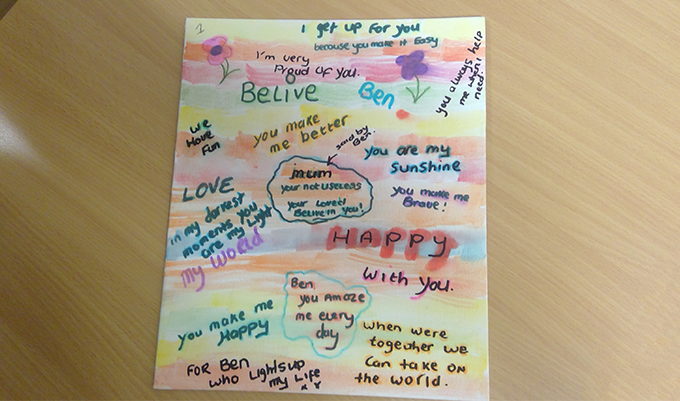 1
I get up for you
because you make it Easy
I'm very
Proud of you.
you always help
me when I
need.
BELIVE
Ben
We
Have
Fun
you make
me better
said by
Ben.
you are my
Sunshine
mum
your not useless
your loved
Belive in you!
LOVE
in my darkest
moments you
are my Light
my World
you make me
Brave!
HAPPY
With you.
Ben
you Amaze
me every
day
you make me
Happy
when were
together we
Can take on
the world.
FOR Ben
who Lights up
my Life
x x